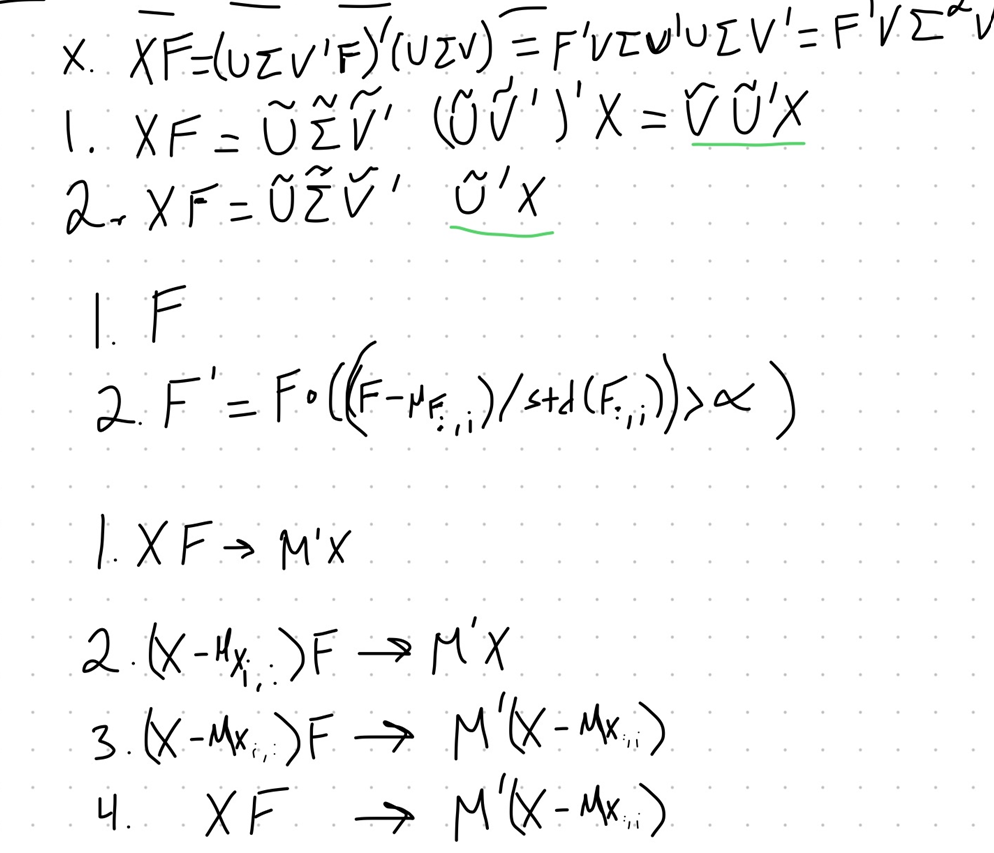 x. XF=(UΣV'F)'(UΣV) = F'VΣU'UΣV' = F'VΣ^αV
1. XF = ŨΣ̃Ṽ' (ŨṼ')'X = ṼŨ'X
2. XF = ŨΣ̃Ṽ' Ũ'X
1. F
2. F' = F∘(((F-μ_{F_{:,i}})/std(F_{:,i}))>α)
1. XF → M'X
2. (X-μ_{X_{i,:}})F → M'X
3. (X-μ_{X_{:,i}})F → M'(X-μ_{X_{:,i}})
4. XF → M'(X-μ_{X_{:,i}})